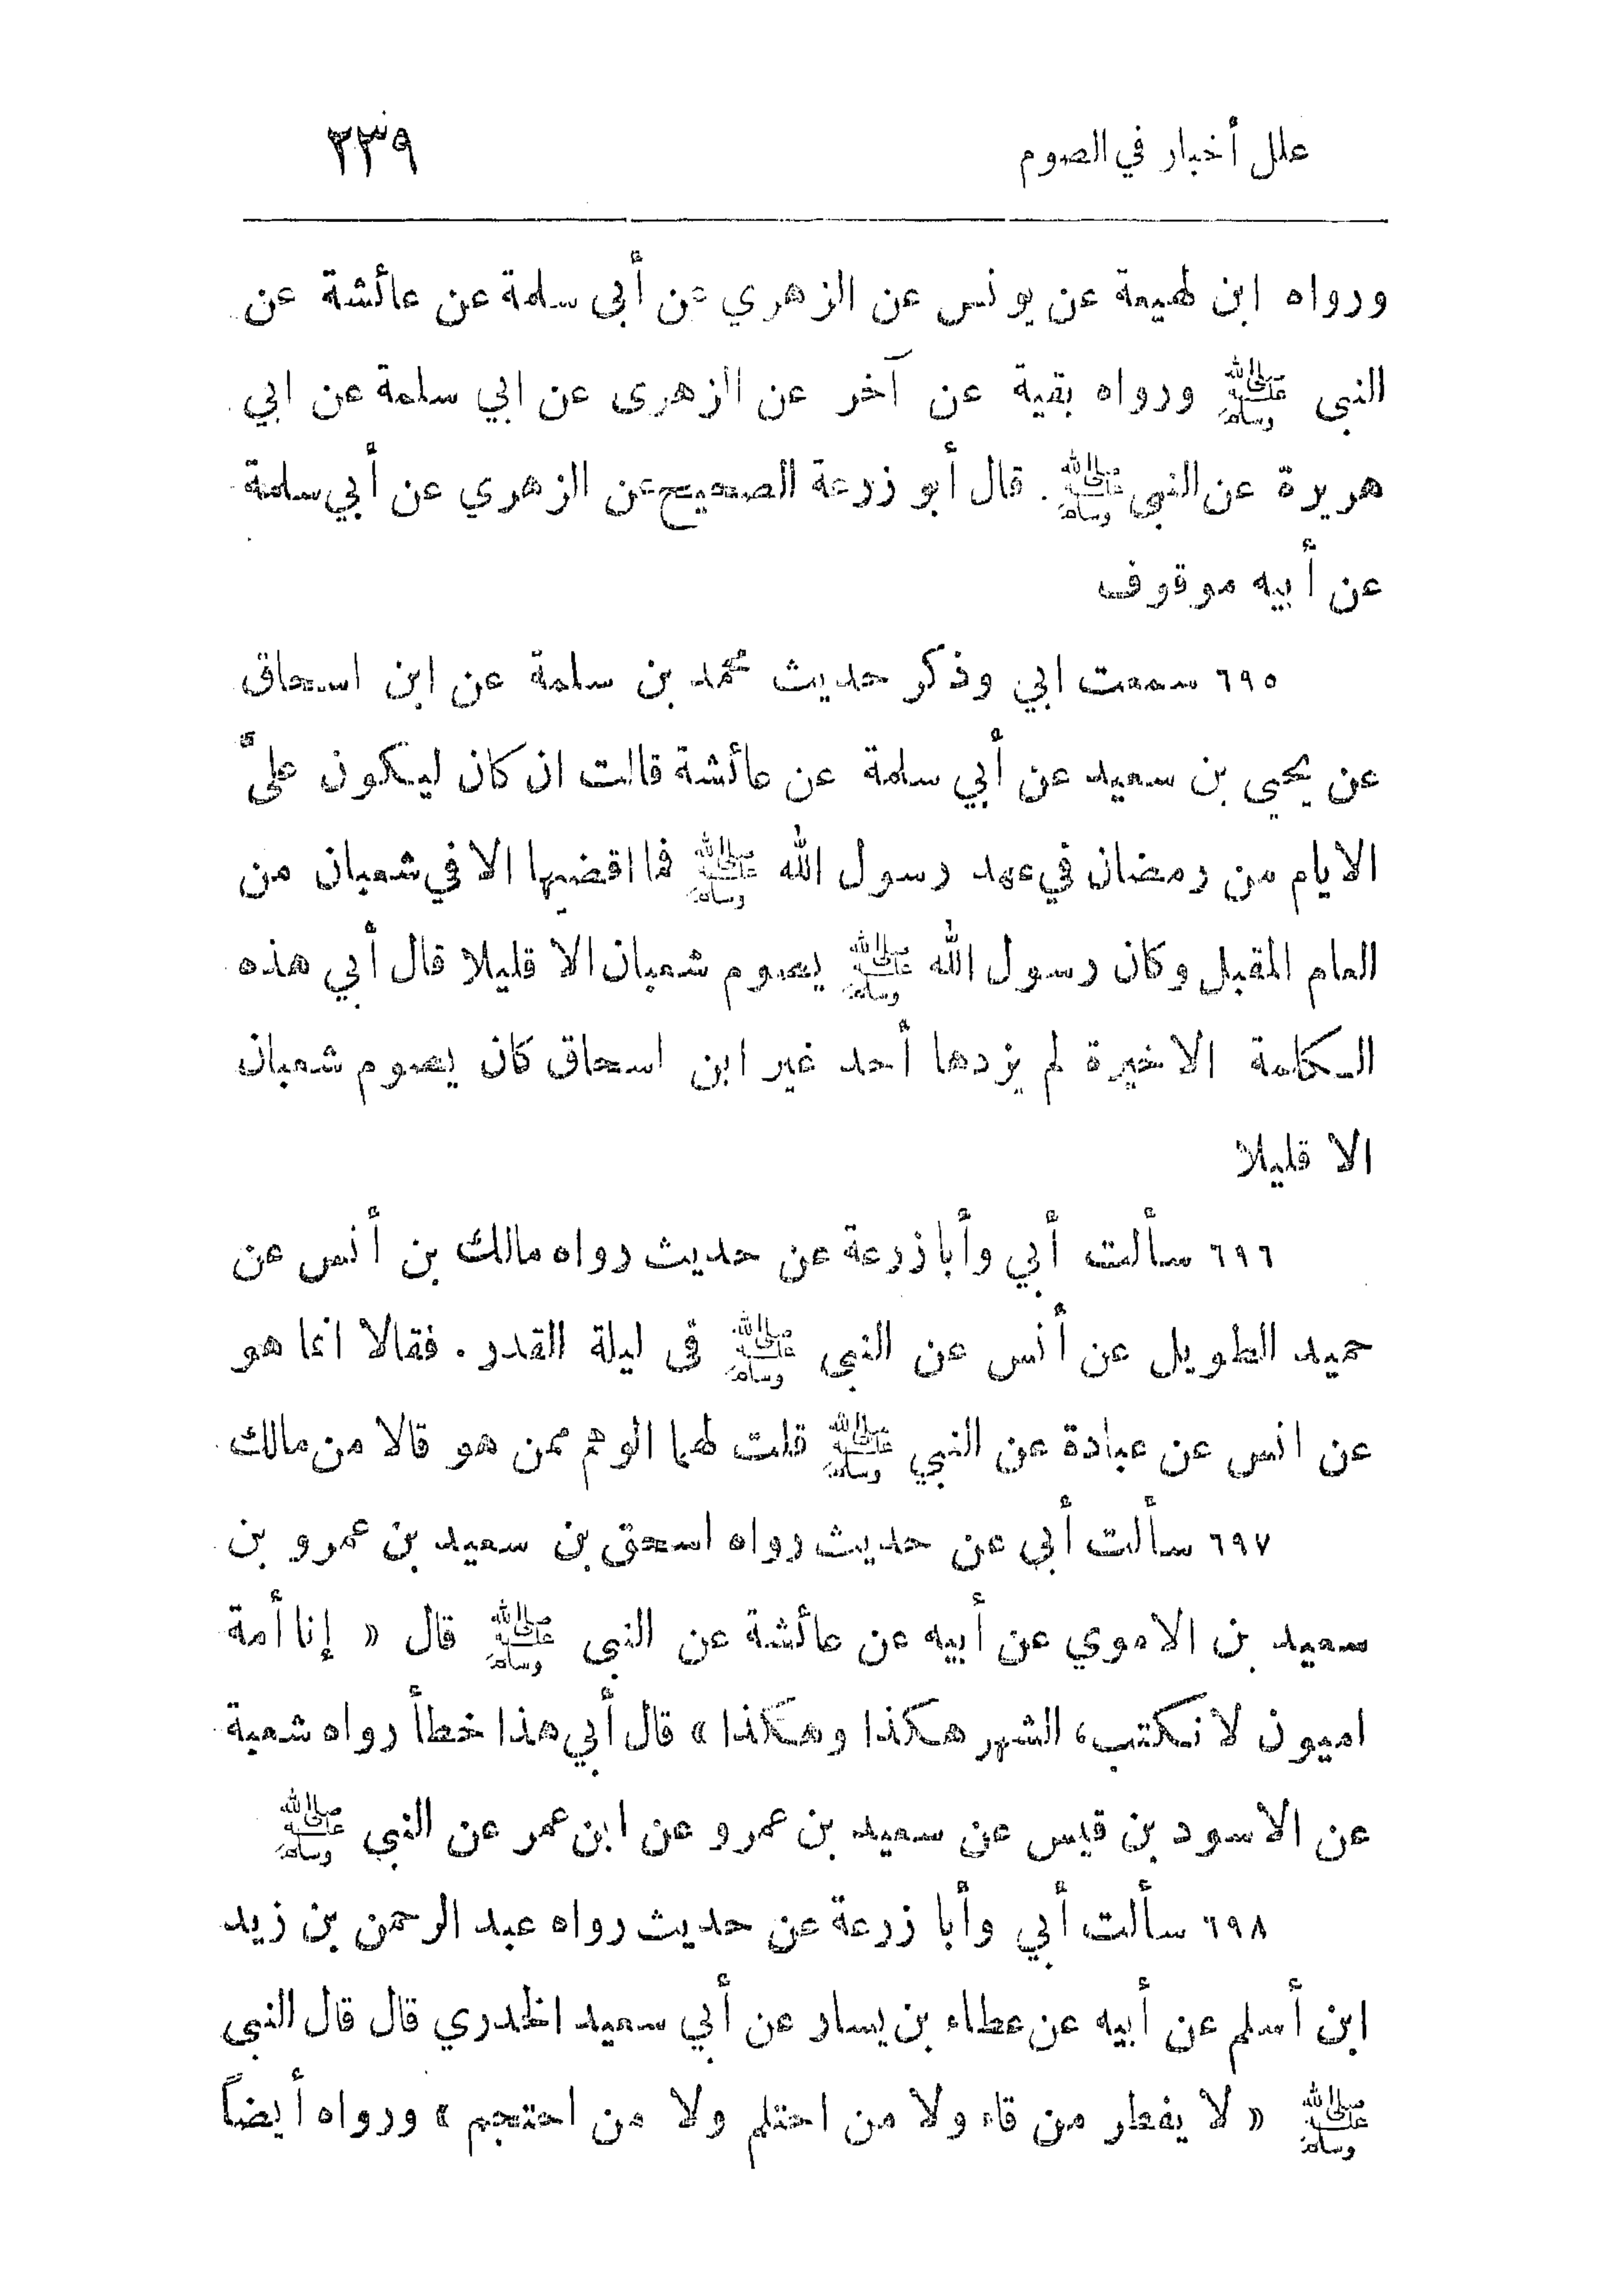 علل أخبار في الصوم ٢٣٩
ورواه ابن لهيعة عن يونس عن الزهري عن أبي سلمة عن عائشة عن
النبي ﷺ ورواه بقية عن آخر عن الزهرى عن ابي سلمة عن ابي
هريرة عن النبي ﷺ . قال أبو زرعة الصحيح عن الزهري عن أبي سلمة
عن أبيه موقوف
٦٩٥ سمعت ابي وذكر حديث محمد بن سلمة عن ابن اسحاق
عن يحيى بن سعيد عن أبي سلمة عن عائشة قالت ان كان ليكون عليَّ
الايام من رمضان في عهد رسول الله ﷺ فما اقضيها الا في شعبان من
العام المقبل وكان رسول الله ﷺ يصوم شعبان الا قليلا قال أبي هذه
الكلمة الاخيرة لم يزدها أحد غير ابن اسحاق كان يصوم شعبان
الا قليلا
٦٩٦ سألت أبي وأبا زرعة عن حديث رواه مالك بن أنس عن
حميد الطويل عن أنس عن النبي ﷺ فى ليلة القدر . فقالا انما هو
عن انس عن عبادة عن النبي ﷺ قلت لهما الوهم ممن هو قالا من مالك
٦٩٧ سألت أبي عن حديث رواه اسحق بن سعيد بن عمرو بن
سعيد بن الاموي عن أبيه عن عائشة عن النبي ﷺ قال « إنا أمة
اميون لا نكتب، الشهر هكذا وهكذا » قال أبي هذا خطأ رواه شعبة
عن الاسود بن قيس عن سعيد بن عمرو عن ابن عمر عن النبي ﷺ
٦٩٨ سألت أبي وأبا زرعة عن حديث رواه عبد الرحمن بن زيد
ابن أسلم عن أبيه عن عطاء بن يسار عن أبي سعيد الخدري قال قال النبي
ﷺ « لا يفطر من قاء ولا من احتلم ولا من احتجم » ورواه أيضاً